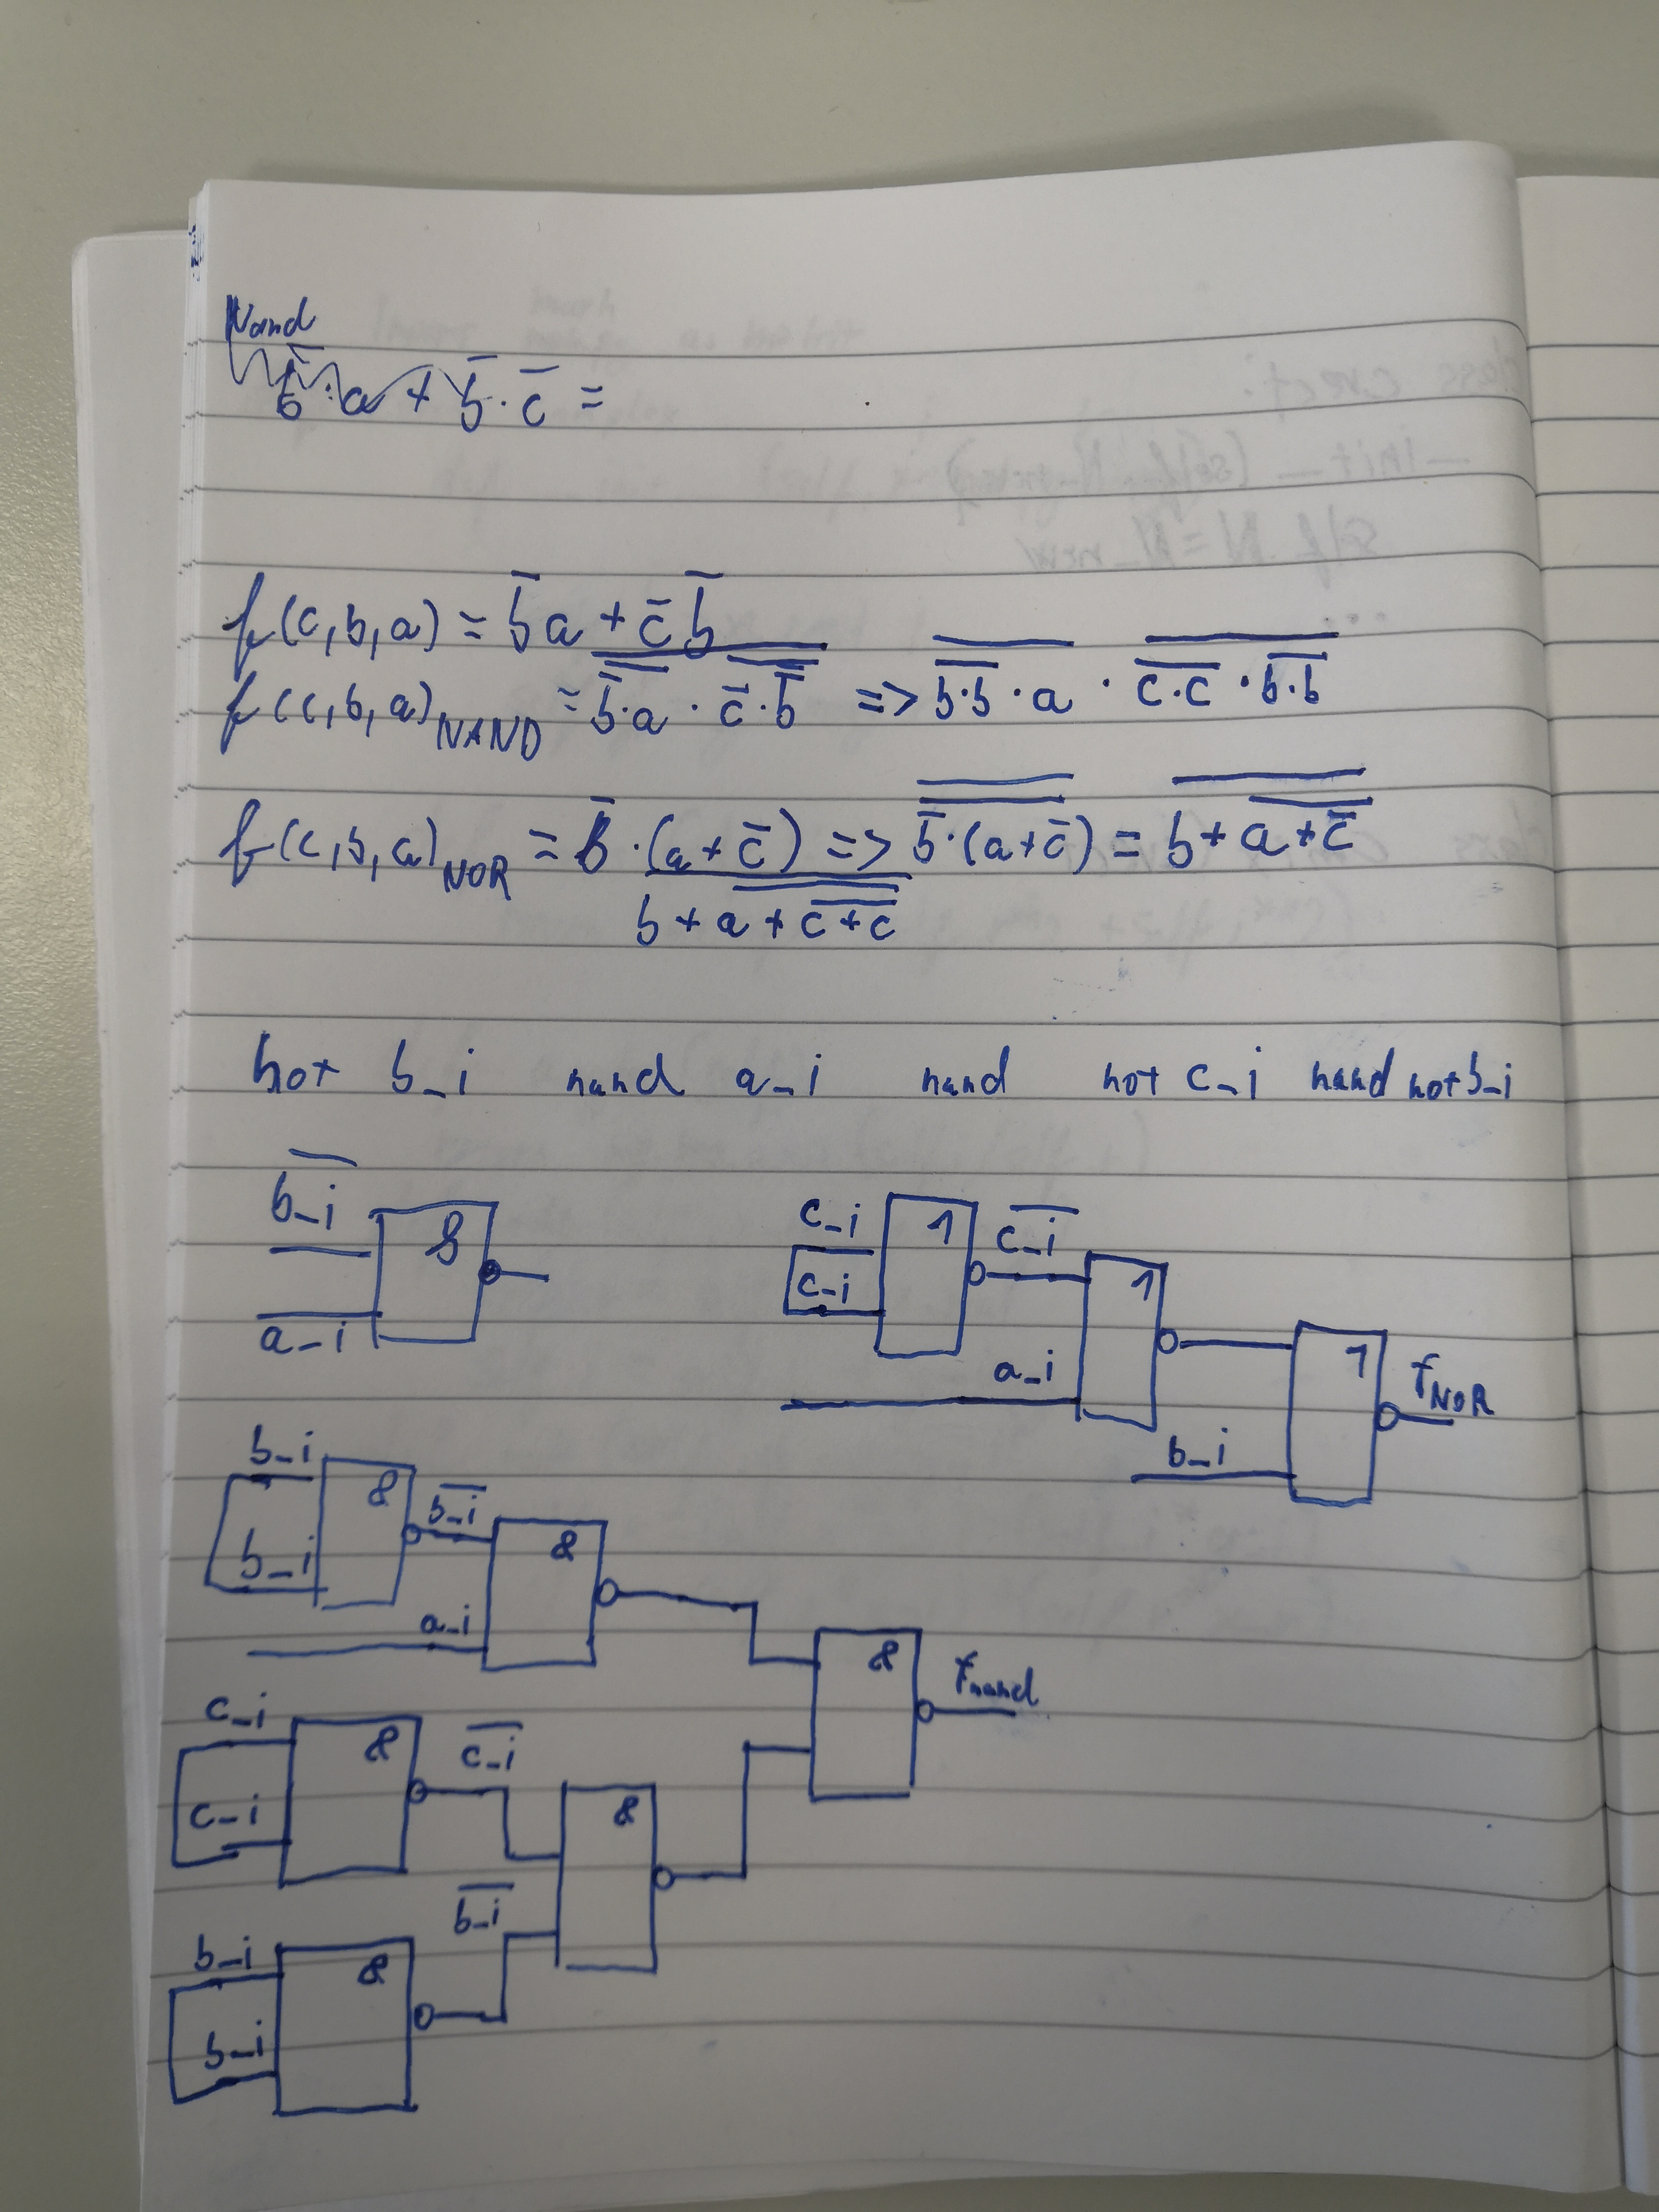 Nand
b̅·a + b̅·c̅ =
f(c,b,a) = b̅a + c̅b̅
f(c,b,a)NAND = b̅·a · c̅·b̅ => b·b · a · c·c · b·b
f(c,b,a)NOR = b̅·(a+c̅) => b̅·(a+c̅) = b+a+c̅
b+a+c+c
not b_i nand a_i nand not c_i nand not b_i
b_i
&
a_i
c_i 1 c_i
c_i 1
a_i 1 fNOR
b_i
b_i & b_i
b_i &
a_i
& fnand
c_i & c_i
c_i &
b_i
b_i &
b_i